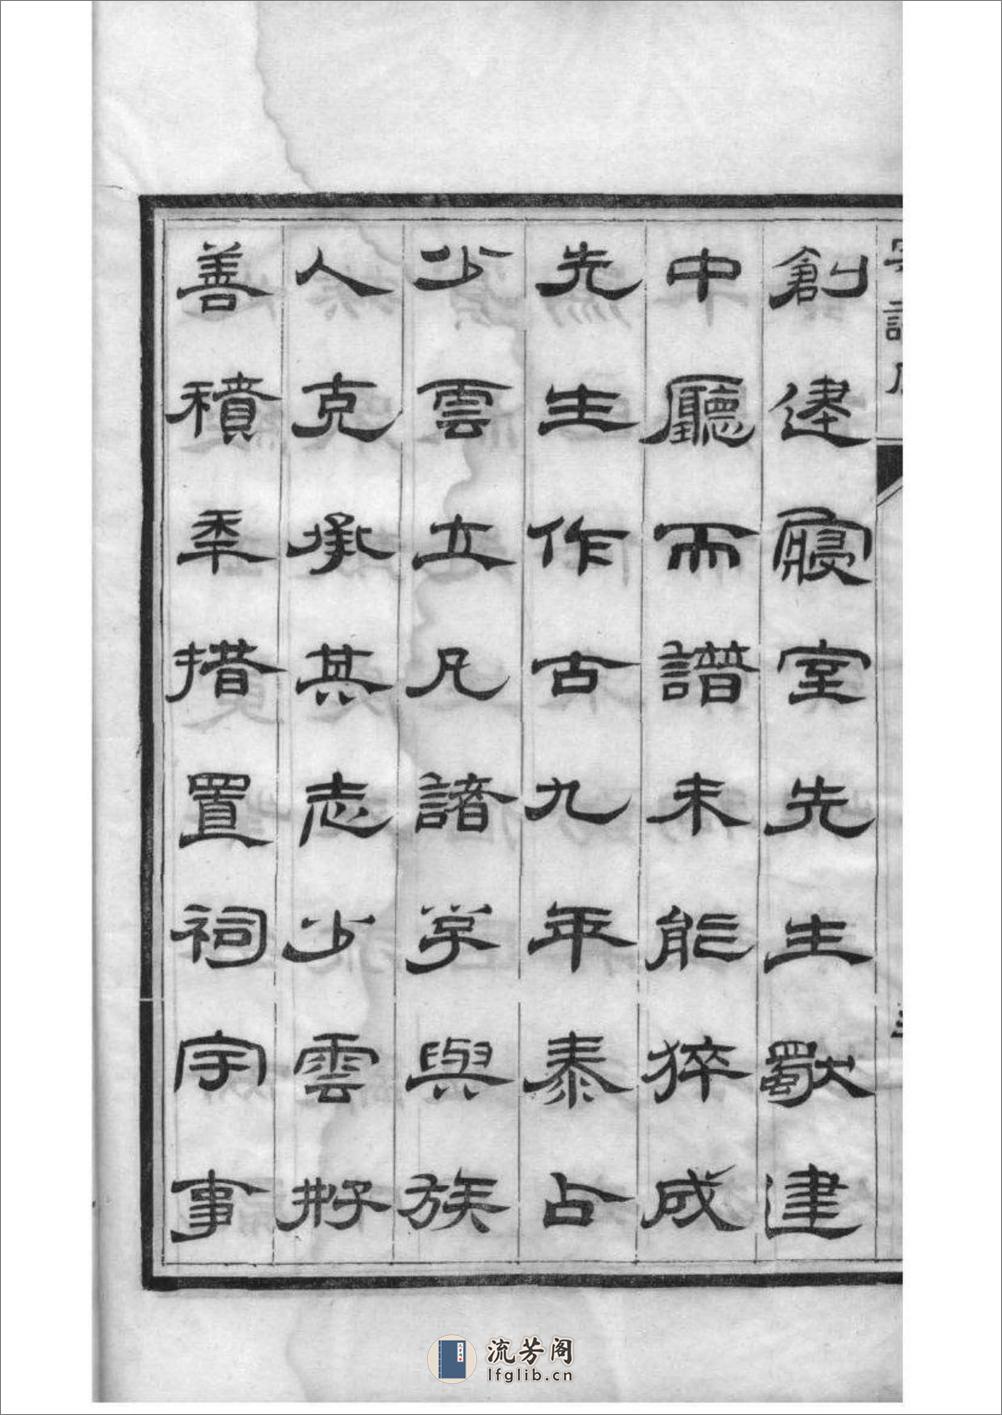 創建寢室先生獨建
中廳而譜未能猝成
先生作古九年泰占
少雲立凡諸孚與族
人克承其志少雲好
善積年措置祠宇事
流芳阁
lfglib.cn